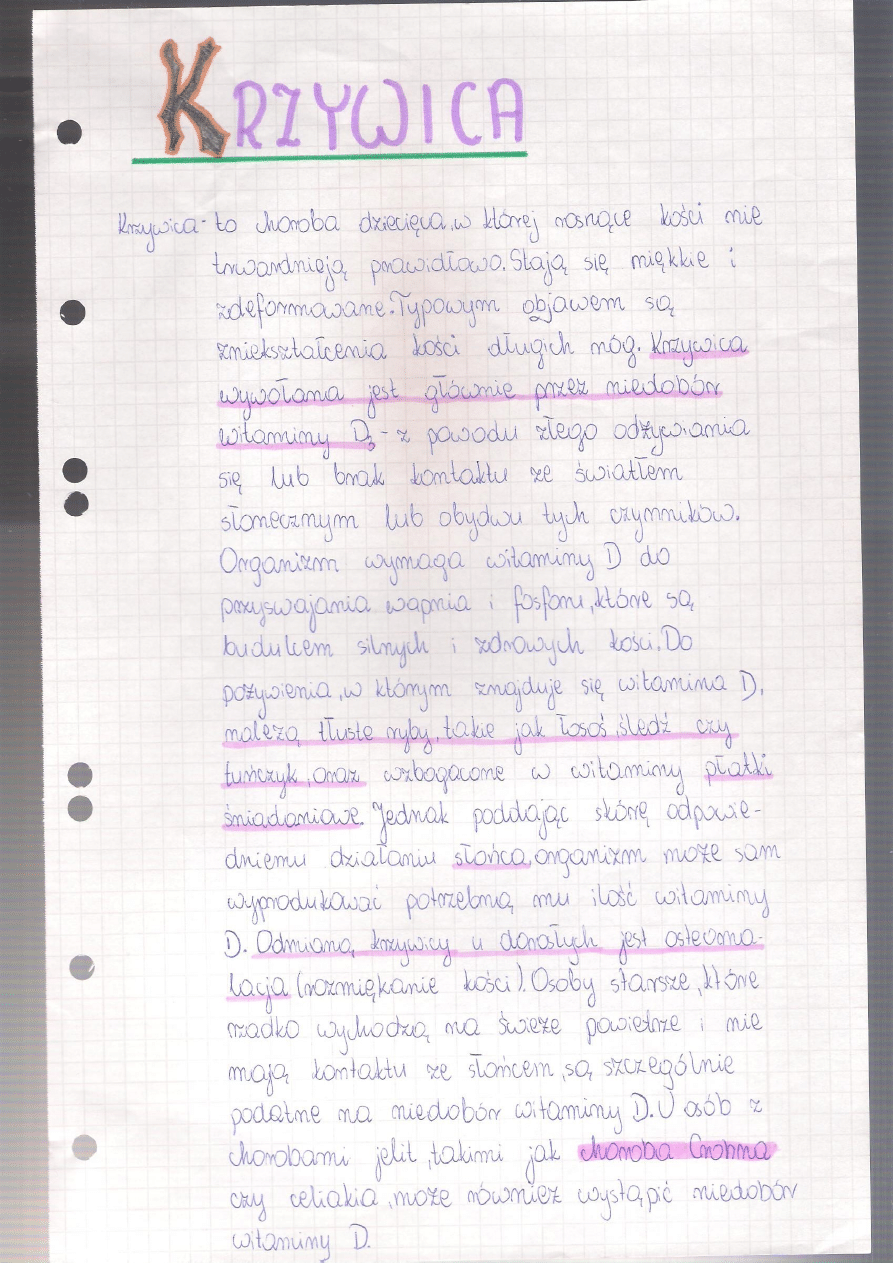 KRZYWICA
Krzywica - to choroba dziecięca, w której rosnące kości nie
twardnieją prawidłowo. Stają się miękkie i
zdeformowane. Typowym objawem są
zniekształcenia kości długich nóg. Krzywica
wywołana jest głównie przez niedobór
witaminy D3 - z powodu złego odżywiania
się lub brak kontaktu ze światłem
słonecznym lub obydwu tych czynników.
Organizm wymaga witaminy D do
przyswajania wapnia i fosforu, które są
budulcem silnych i zdrowych kości. Do
pożywienia, w którym znajduje się witamina D,
należą tłuste ryby, takie jak łosoś, śledź czy
tuńczyk, oraz wzbogacone w witaminy płatki
śniadaniowe. Jednak poddając skórę odpowie-
dniemu działaniu słońca, organizm może sam
wyprodukować potrzebną mu ilość witaminy
D. Odmianą krzywicy u dorosłych jest osteoma-
lacja (rozmiękanie kości). Osoby starsze, które
rzadko wychodzą na świeże powietrze i nie
mają kontaktu ze słońcem, są szczególnie
podatne na niedobór witaminy D. U osób z
chorobami jelit, takimi jak choroba Crohna
czy celiakia, może również wystąpić niedobór
witaminy D.